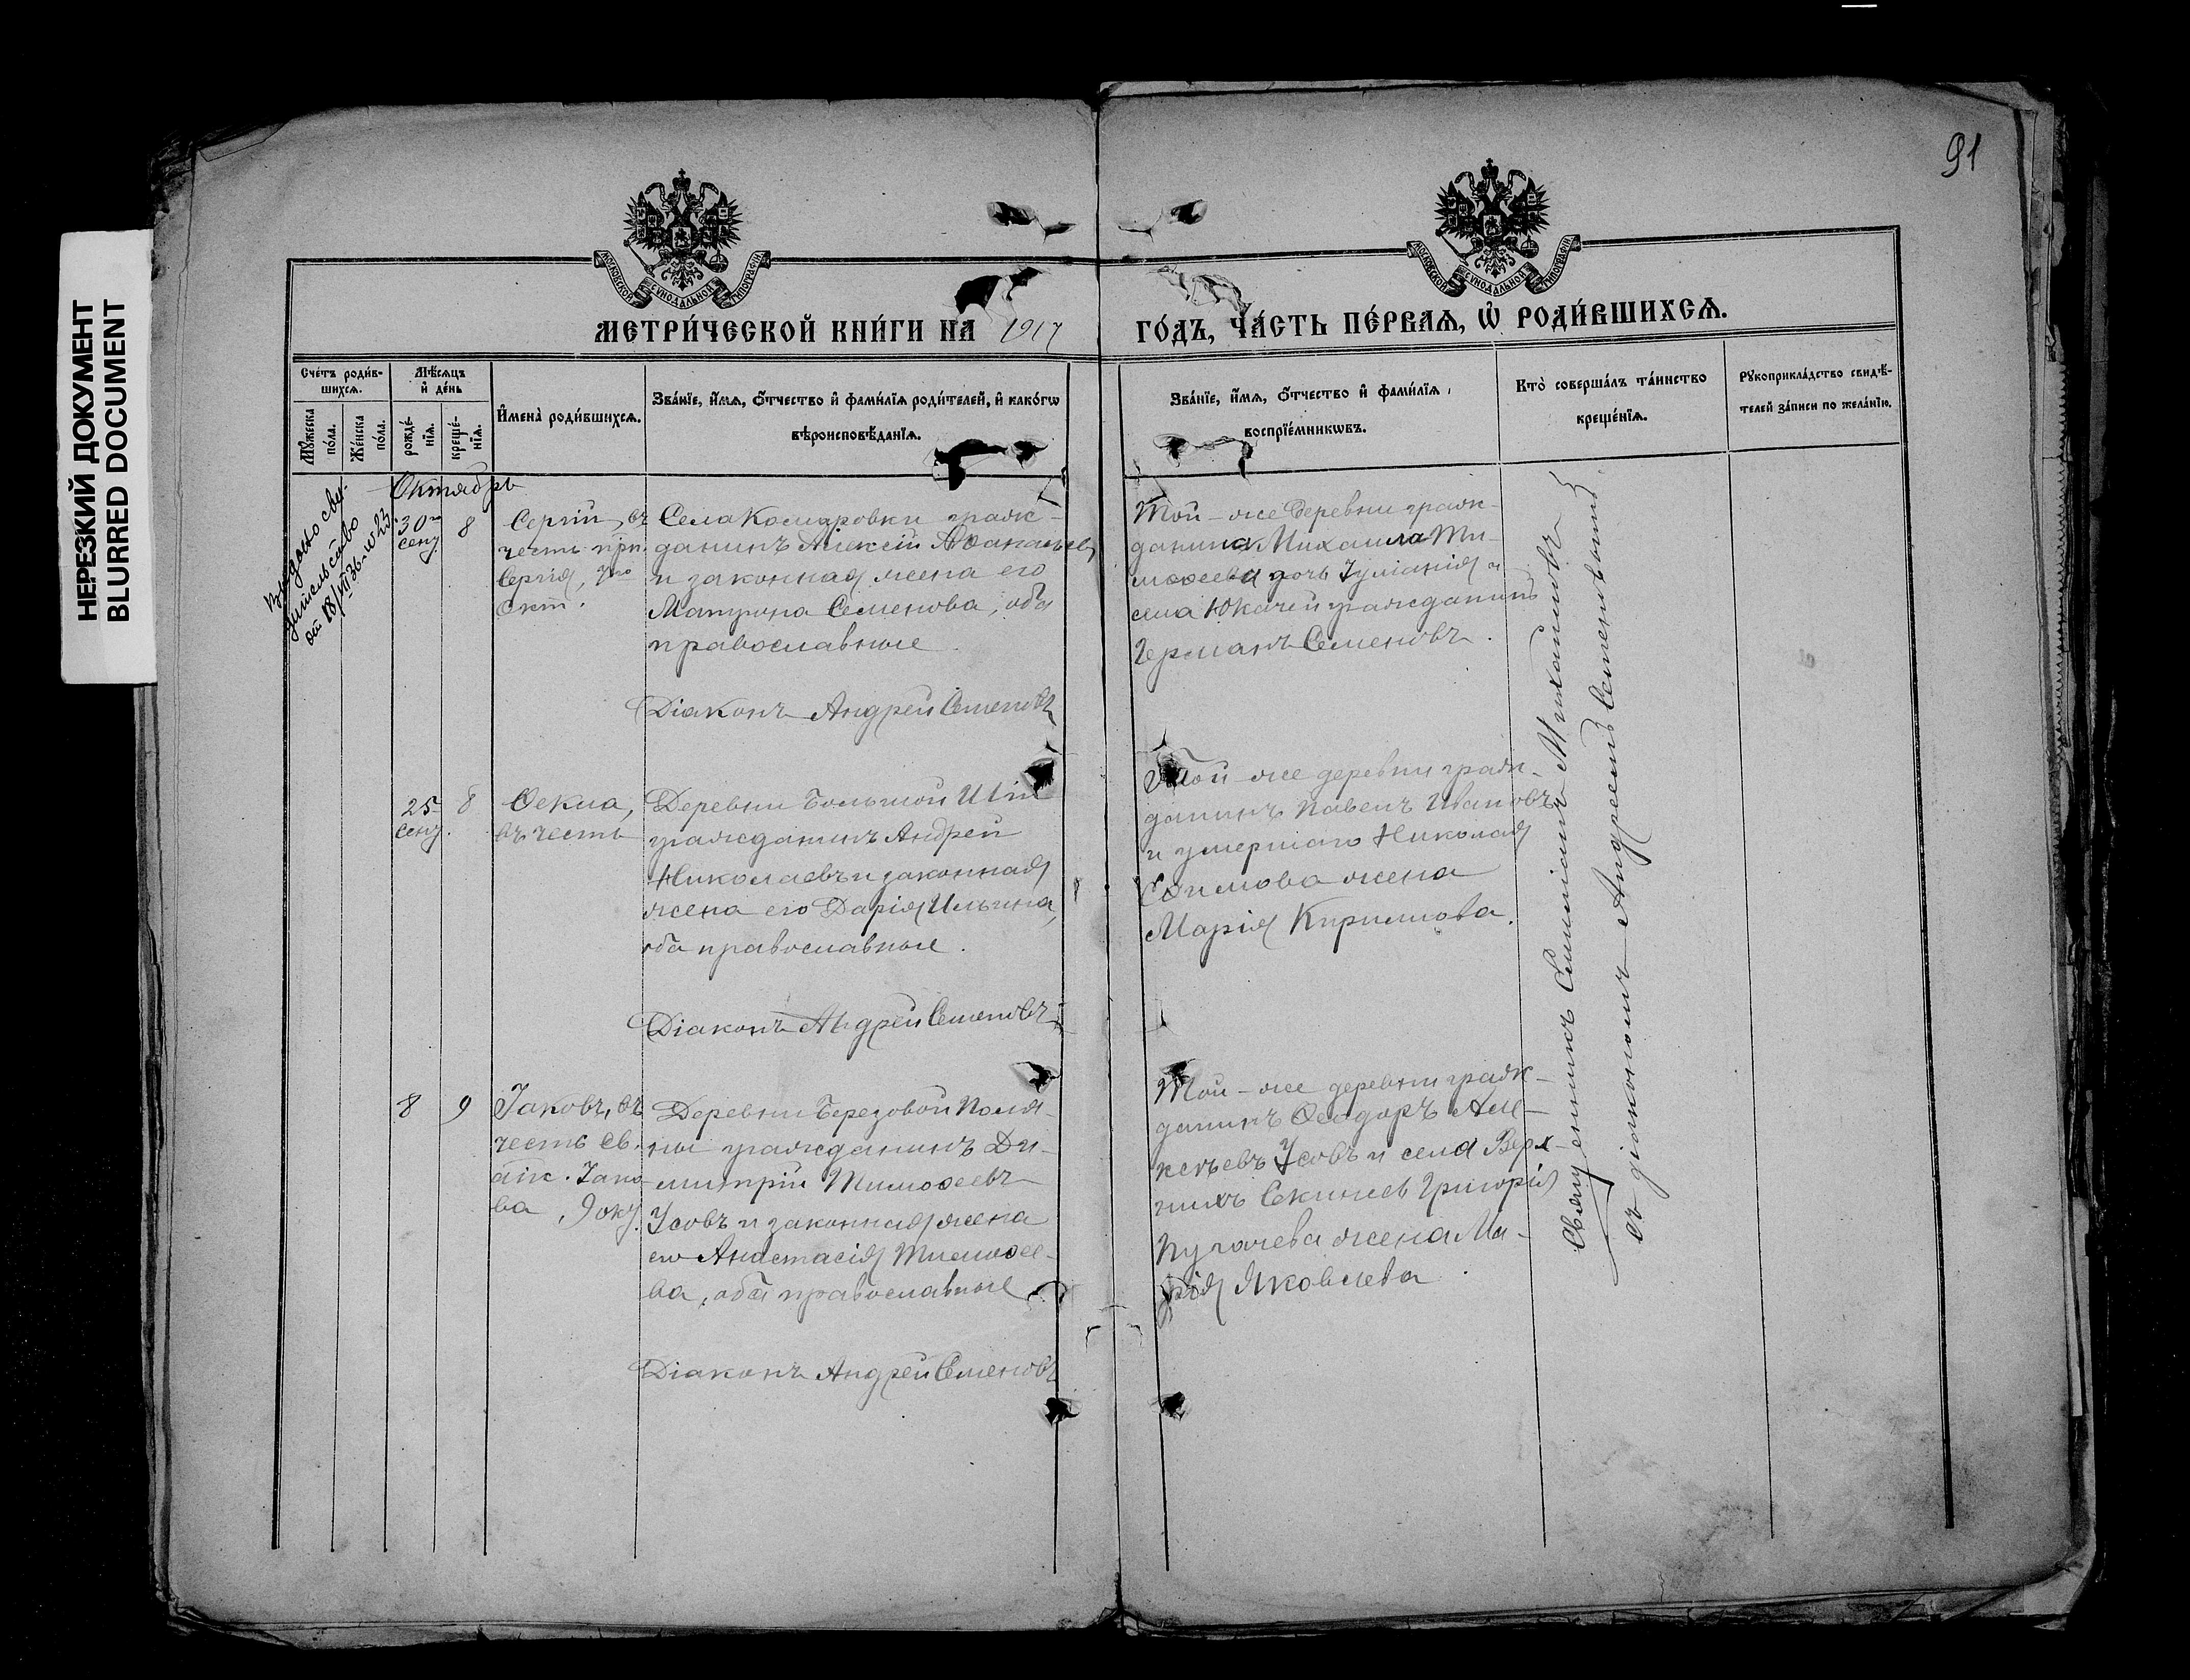 91
НЕРЕЗКИЙ ДОКУМЕНТ
BLURRED DOCUMENT
МОСКОВСКОЙ СѴНОДАЛЬНОЙ ТИПОГРАФІИ
МОСКОВСКОЙ СѴНОДАЛЬНОЙ ТИПОГРАФІИ
МЕТРИ́ЧЕСКОЙ КНИ́ГИ НА 1917 ГО́ДЪ, ЧА́СТЬ ПЕ́РВАѦ, Ѡ҆ РОДИ́ВШИХСѦ.
Сче́тъ роди́в-
шихсѧ.
Мꙋ́жеска
по́ла.
Же́нска
по́ла.
Мѣ́сѧцъ
и҆ де́нь
рожде́-
нїѧ.
креще́-
нїѧ.
И҆мена̀ роди́вшихсѧ.
Зва́нїе, и҆́мѧ, ѻ҆́тчество и҆ фами́лїѧ роди́телей, и҆ како́гѡ
вѣроисповѣ́данїѧ.
Зва́нїе, и҆́мѧ, ѻ҆́тчество и҆ фами́лїѧ
воспрїе́мникѡвъ.
Кто̀ соверша́лъ та́инство
креще́нїѧ.
Рꙋкоприкла́дство свидѣ́-
телей за́писи по жела́нїю.
Октябрь
Выдано сви-
дительство
от 18/VII 36 - № 23
30го
сент.
8
Сергій, въ
честь прп.
Сергія, 7го
окт.
Села Комаровки граж-
данинъ Алексій Аѳанасьев
и законная жена его
Матрона Семенова, оба
православные.
Діаконъ Андрей Семеновъ
Той-же деревни граж-
данина Михаила Ти-
моѳеева дочь Іуліанія и
села Юкачей гражданинъ
Германъ Семеновъ.
25
сент.
8
Ѳекла,
въ честь
Деревни Большой Шіи
гражданинъ Андрей
Николаевъ и законная
жена его Дарія Ильина,
оба православные.
Діаконъ Андрей Семеновъ
Той-же деревни граж-
данинъ Павелъ Ивановъ
и умершаго Николая
Ефимова жена
Марія Кириллова.
8
9
Іаковъ, въ
честь св.
апс. Іако-
ва, 9 окт.
Деревни Березовой Поля-
ны гражданинъ Ди-
митрій Тимоѳеевъ
Усовъ и законная жена
его Анастасія Тимоѳее-
ва, оба православные
Діаконъ Андрей Семеновъ
Той-же деревни граж-
данинъ Ѳеодоръ Але-
ксѣевъ Усовъ и села Верх-
нихъ Секинес Григорія
Пугачева жена Ма-
рія Яковлева.
Священникъ Симпліанъ Михайловъ
съ діакономъ Андреемъ Семеновымъ